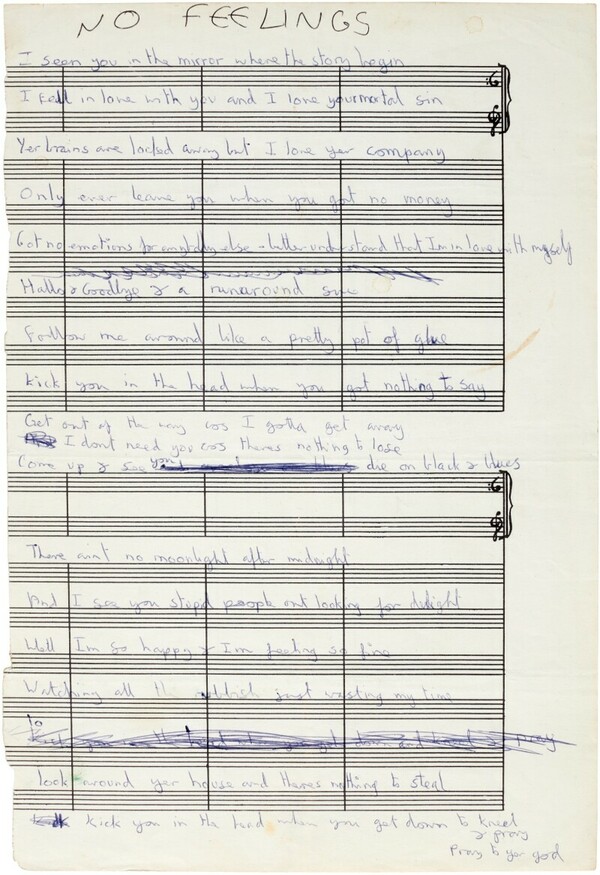 NO FEELINGS
I seen you in the mirror where the story begin
I fell in love with you and I love your mortal sin
Yer brains are locked away but I love yer company
Only ever leave you when you got no money
Got no emotions for anybody else - better understand that Im in love with myself
Hallo & Goodbye & a runaround sue
Follow me around like a pretty pot of glue
Kick you in the head when you got nothing to say
Get out of the way cos I gotta get away
I dont need you cos theres nothing to lose
Come up & see you die on black & blues
There aint no moonlight after midnight
And I see you stupid people out looking for delight
Well Im so happy & Im feeling so fine
Watching all the rubbish just wasting my time
look around yer house and theres nothing to steal
kick you in the head when you get down to kneel
& pray
Pray to yer god